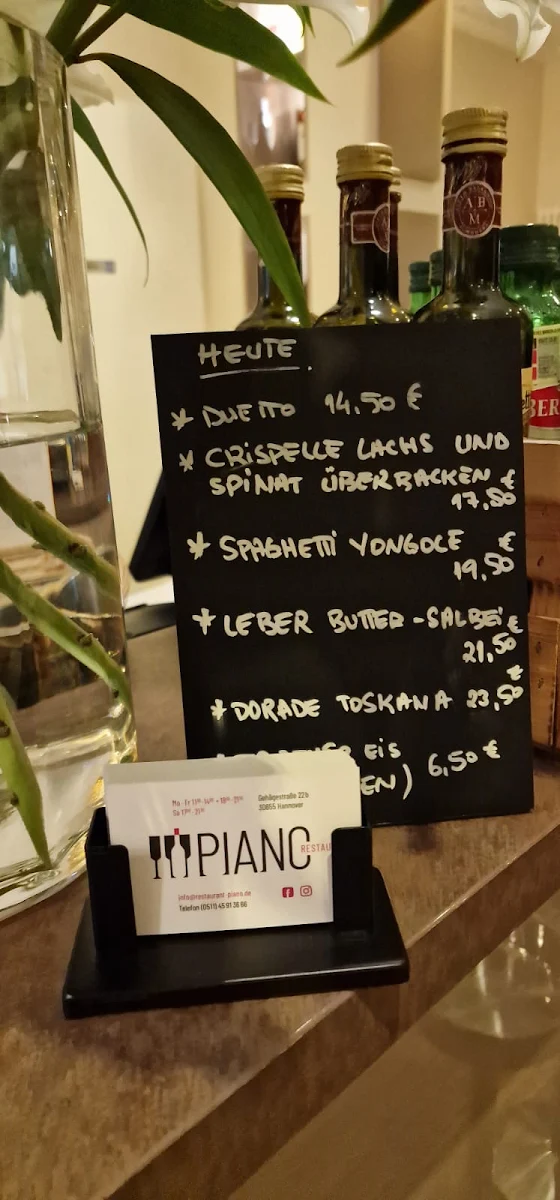 HEUTE
* DUETTO 14,50 €
* CRISPELLE LACHS UND
SPINAT ÜBERBACKEN €
17,50
* SPAGHETTI VONGOLE €
19,50
* LEBER BUTTER-SALBEI €
21,50
* DORADE TOSKANA 23,50 €
EIS
EN) 6,50 €
Gehägestraße 22b
30655 Hannover
PIANO
RESTAU
info@restaurant-piano.de
Telefon (0511)
ABM
BER